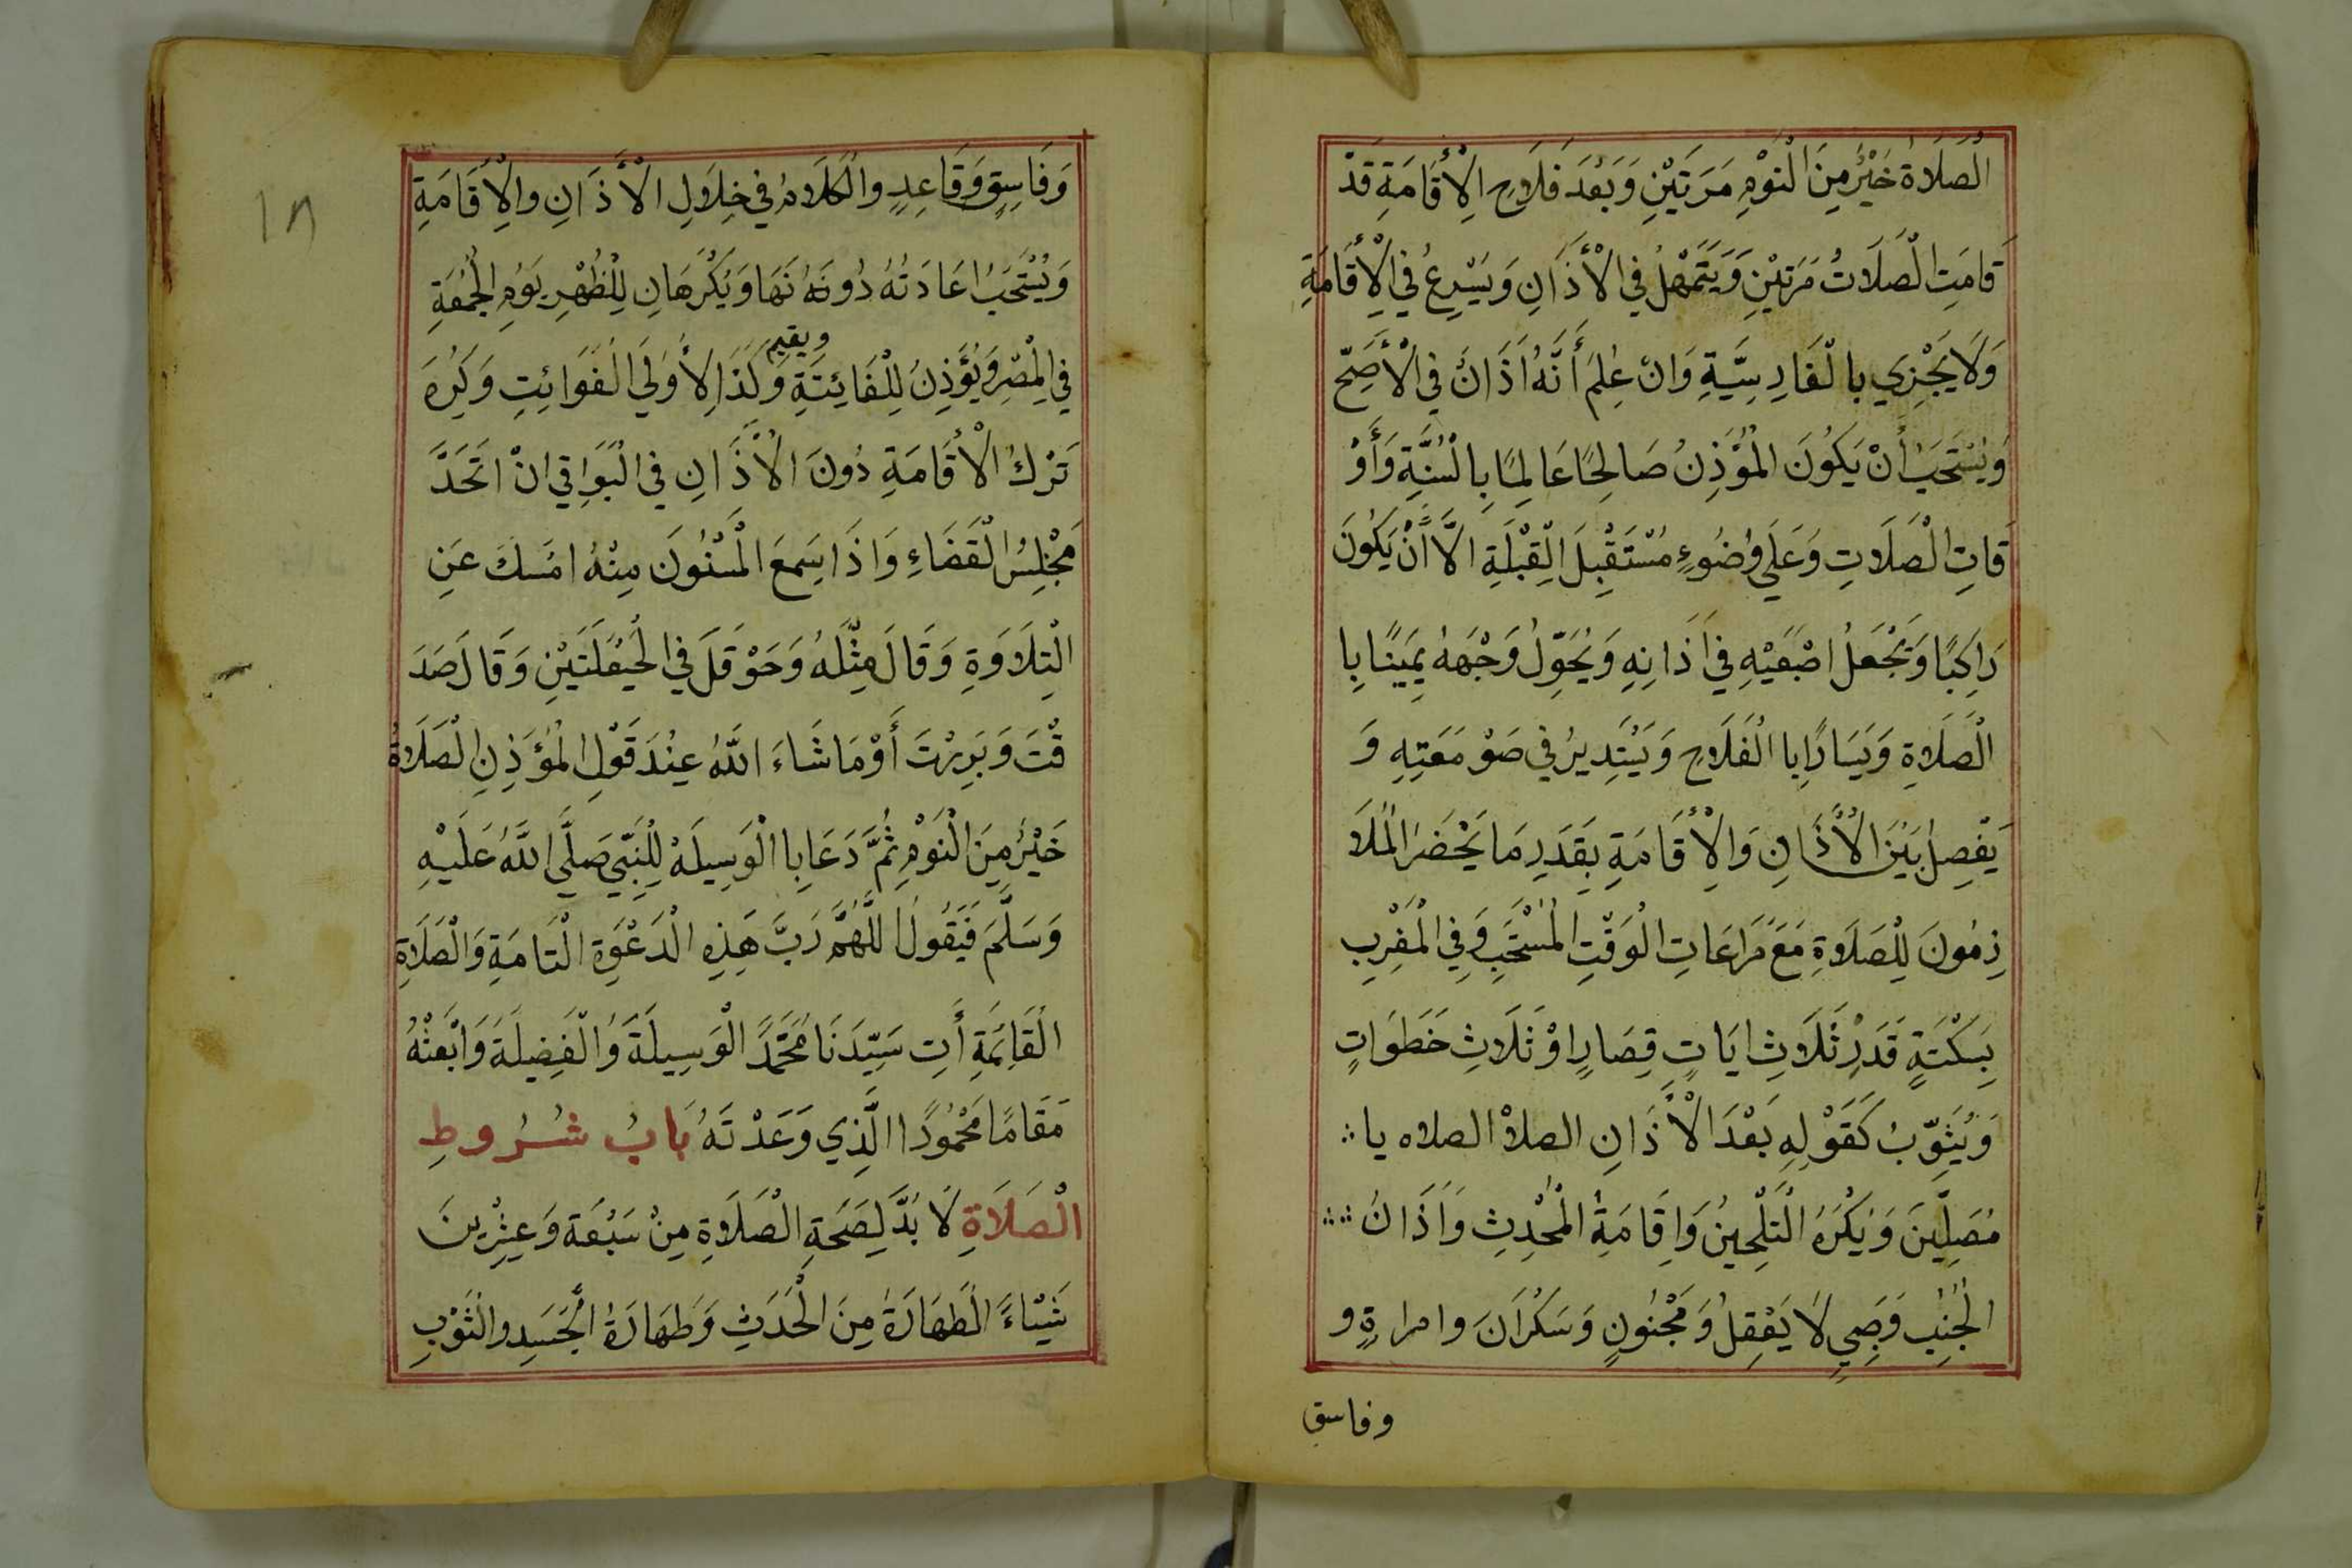 الْصَلَاةُ خَيْرٌ مِنَ الْنَوْمِ مَرَتَيْنِ وَبَعْدَ فَلَاحِ الْأِقَامَةِ قَدْ
قَامَتِ الْصَلَاتُ مَرَتَيْنِ وَيَتَمَهْلُ فِي الْأَذَانِ وَيَسْرِعُ فِي الْأِقَامَةِ
وَلَا يَجْزِي بِالْفَارِسِيَّةِ وَانْ عُلِمَ أَنَّهُ اَذَانٌ فِي الْأَصَحّ
وَيُسْتَحَبُ أَنْ يَكُونَ الْمُؤَذِنُ صَالِحًا عَالِمًا بِالْسُنَّةِ وَأَوْ
قَاتِ الْصَلَاتِ وَعَلَى وُضُوءٍ مُسْتَقْبِلَ الْقِبْلَةِ الَّا أَنْ يَكُونَ
رَاكِبًا وَيَجْعَلُ اصْبَعَيْهِ فِي أَذَانِهِ وَيُحَوِّلُ وَجْهَهُ يَمِينًا بِا
الْصَلَاةِ وَيَسَارًا بِا الْفَلَاحِ وَيَسْتَدِيرُ فِي صَوْمَعَتِهِ وَ
يَفْصِلُ بَيْنَ الْأَذَانِ وَالْأِقَامَةِ بِقَدَرِ مَا يَحْضَرُ الْمُلَا
زِمُونَ لِلْصَلَاوةِ مَعَ مُرَاعَاتِ الْوَقْتِ الْمُسْتَحَبِ وَفِي الْمَغْرِبِ
بِسَكْتَةٍ قَدَرِ ثَلَاثِ ايَاتٍ قِصَارٍ اوْ ثَلَاثِ خَطَوَاتٍ
وَيُثَوِّبُ كَقَوْلِهِ بَعْدَ الْأَذَانِ الصلاة الصلاه يا
مُصَلِّينَ وَيُكْرَهُ الْتَلْحِينُ وَاِقَامَةُ الْمُحْدِثِ وَأَذَانُ
الْجُنُبِ وَصَبِي لَا يَعْقِلُ وَمَجْنُونٍ وَسَكْرَانَ وامراةٍ و
وفاسق
١٨
وَفَاسِقٍ وَقَاعِدٍ والْكَلَامُ فِي خِلَالِ الْأَذَانِ والْأِقَامَةِ
وَيُسْتَحَبُ اعَادَتُهُ دُونَهَا وَيُكْرَهَانِ لِلْظُهْرِ يَوْمِ الْجُمُعَةِ
فِي الْمِصْرِ وَيُؤَذِنُ لِلْفَائِتَةِ ويقيم وَكَذَا لِأُولَى الْفَوَائِتِ وَكُرِهَ
تَرْكُ الْأِقَامَةِ دُونَ الْأَذَانِ فِي الْبَوَاقِي انْ اتَحَدَّ
مَجْلِسُ الْقَضَاءِ وَاذَا سَمِعَ الْمَسْنُونَ مِنْهُ امْسَكَ عَنِ
الْتِلَاوَةِ وَقَالَ مِثْلَهُ وَحَوْقَلَ فِي الْحَيْعَلَتَيْنِ وَقَالَ صَدَ
قْتَ وَبَرِرْتَ أَوْ مَا شَاءَ اللَّهُ عِنْدَ قَوْلِ الْمُؤَذِنِ الْصَلَاةُ
خَيْرٌ مِنَ الْنَوْمِ ثُمَّ دَعَا بِا الْوَسِيلَةْ لِلْنَبِّي صَلَّى اللَّهُ عَلَيْهِ
وَسَلَّمَ فَيَقُولُ اللَّهُمَّ رَبَّ هَذِهِ الْدَعْوَةِ الْتَامَةِ وَالْصَلَاةِ
الْقَائِمَةِ أَتِ سَيِّدَنَا مُحَمَّدً الْوَسِيلَةَ وَالْفَضِيلَةَ وَابْعَثْهُ
مَقَامًا مَحْمُودًا الَّذِي وَعَدْتَهُ بَابُ شُرُوطِ
الْصَلَاةِ لَا بُدَّ لِصَحَةِ الْصَلَاوةِ مِنْ سَبْعَة وَعِشْرِينَ
شَيْاءً الْطَهَارَةُ مِنَ الْحَدَثِ وَطَهَارَةُ الْجَسَدِ والْثَوْبِ